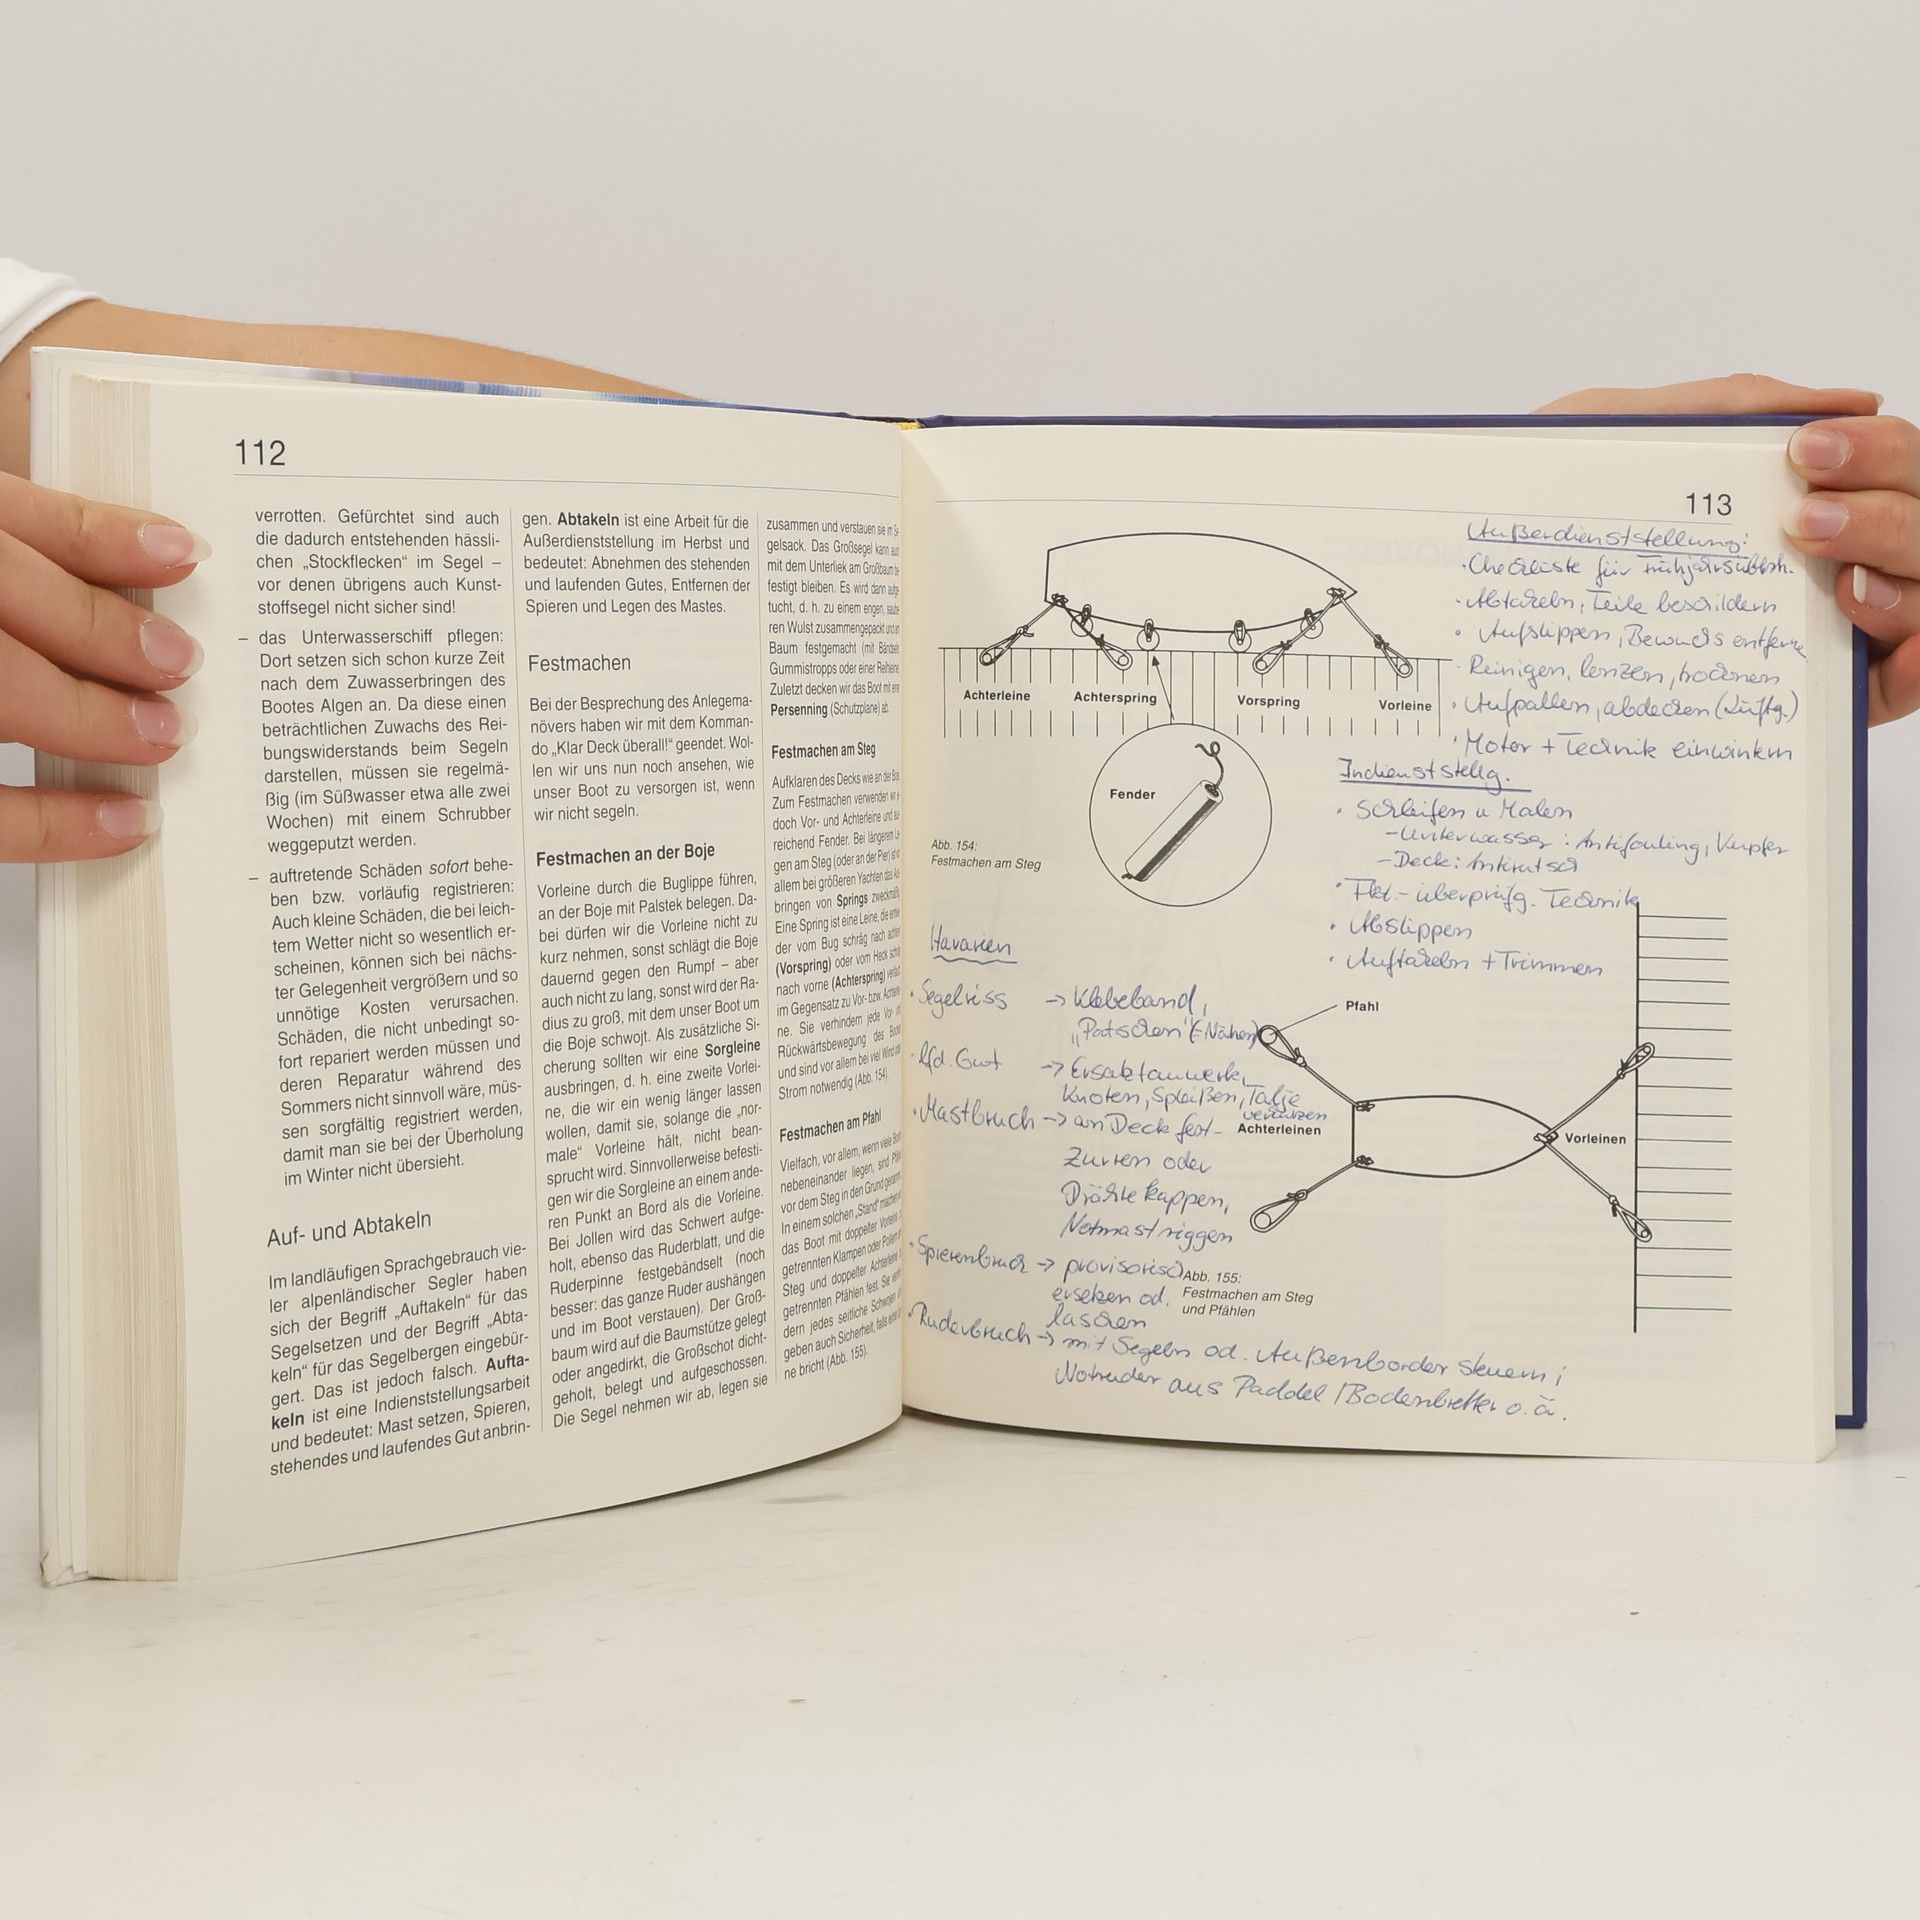 112
verrotten. Gefürchtet sind auch
die dadurch entstehenden hässli-
chen „Stockflecken“ im Segel –
vor denen übrigens auch Kunst-
stoffsegel nicht sicher sind!
– das Unterwasserschiff pflegen:
Dort setzen sich schon kurze Zeit
nach dem Zuwasserbringen des
Bootes Algen an. Da diese einen
beträchtlichen Zuwachs des Rei-
bungswiderstands beim Segeln
darstellen, müssen sie regelmä-
ßig (im Süßwasser etwa alle zwei
Wochen) mit einem Schrubber
weggeputzt werden.
– auftretende Schäden sofort behe-
ben bzw. vorläufig registrieren:
Auch kleine Schäden, die bei leich-
tem Wetter nicht so wesentlich er-
scheinen, können sich bei nächs-
ter Gelegenheit vergrößern und so
unnötige Kosten verursachen.
Schäden, die nicht unbedingt so-
fort repariert werden müssen und
deren Reparatur während des
Sommers nicht sinnvoll wäre, müs-
sen sorgfältig registriert werden,
damit man sie bei der Überholung
im Winter nicht übersieht.
Auf- und Abtakeln
Im landläufigen Sprachgebrauch vie-
ler alpenländischer Segler haben
sich der Begriff „Auftakeln“ für das
Segelsetzen und der Begriff „Abta-
keln“ für das Segelbergen eingebür-
gert. Das ist jedoch falsch. Aufta-
keln ist eine Indienststellungsarbeit
und bedeutet: Mast setzen, Spieren,
stehendes und laufendes Gut anbrin-
gen. Abtakeln ist eine Arbeit für die
Außerdienststellung im Herbst und
bedeutet: Abnehmen des stehenden
und laufenden Gutes, Entfernen der
Spieren und Legen des Mastes.
Festmachen
Bei der Besprechung des Anlegema-
növers haben wir mit dem Komman-
do „Klar Deck überall!“ geendet. Wol-
len wir uns nun noch ansehen, wie
unser Boot zu versorgen ist, wenn
wir nicht segeln.
Festmachen an der Boje
Vorleine durch die Buglippe führen,
an der Boje mit Palstek belegen. Da-
bei dürfen wir die Vorleine nicht zu
kurz nehmen, sonst schlägt die Boje
dauernd gegen den Rumpf – aber
auch nicht zu lang, sonst wird der Ra-
dius zu groß, mit dem unser Boot um
die Boje schwojt. Als zusätzliche Si-
cherung sollten wir eine Sorgleine
ausbringen, d. h. eine zweite Vorlei-
ne, die wir ein wenig länger lassen
wollen, damit sie, solange die „nor-
male“ Vorleine hält, nicht bean-
sprucht wird. Sinnvollerweise befesti-
gen wir die Sorgleine an einem ande-
ren Punkt an Bord als die Vorleine.
Bei Jollen wird das Schwert aufge-
holt, ebenso das Ruderblatt, und die
Ruderpinne festgebändselt (noch
besser: das ganze Ruder aushängen
und im Boot verstauen). Der Groß-
baum wird auf die Baumstütze gelegt
oder angedirkt, die Großschot dicht-
geholt, belegt und aufgeschossen.
Die Segel nehmen wir ab, legen sie
zusammen und verstauen sie im Se-
gelsack. Das Großsegel kann auch
mit dem Unterliek am Großbaum be-
festigt bleiben. Es wird dann aufge-
tucht, d. h. zu einem engen, saube-
ren Wulst zusammengepackt und am
Baum festgemacht (mit Bändseln
Gummistropps oder einer Reihleine
Zuletzt decken wir das Boot mit einer
Persenning (Schutzplane) ab.
Festmachen am Steg
Aufklaren des Decks wie an der Boje
Zum Festmachen verwenden wir je-
doch Vor- und Achterleine und aus-
reichend Fender. Bei längerem Lie-
gen am Steg (oder an der Pier) ist vor
allem bei größeren Yachten das Aus-
bringen von Springs zweckmäßig
Eine Spring ist eine Leine, die entwe-
der vom Bug schräg nach achtern
(Vorspring) oder vom Heck schräg
nach vorne (Achterspring) verläuft
im Gegensatz zu Vor- bzw. Achterlei-
ne. Sie verhindern jede Vor- und
Rückwärtsbewegung des Bootes
und sind vor allem bei viel Wind oder
Strom notwendig (Abb. 154).
Festmachen am Pfahl
Vielfach, vor allem, wenn viele Boote
nebeneinander liegen, sind Pfähle
vor dem Steg in den Grund gerammt
In einem solchen „Stand“ machen wir
das Boot mit doppelter Vorleine
getrennten Klampen oder Pollern
Steg und doppelter Achterleine
getrennten Pfählen fest. Sie verhin-
dern jedes seitliche Schwojen und
geben auch Sicherheit, falls eine Lei-
ne bricht (Abb. 155).
113
Außerdienststellung:
· Checkliste für Frühjahrsüberh.
· Abtakeln, Teile beschildern
· Aufslippen, Bewuchs entfernen
· Reinigen, lenzen, trocknen
· Aufpallen, abdecken (Lüftg.)
· Motor + Technik einwintern
Indienststellg.
· Schleifen u Malen
– Unterwasser: Antifouling, Kupfer
– Deck: Antirutsch
· Fkt.-überprüfg. Technik
· Abslippen
· Auftakeln + Trimmen
Achterleine
Achterspring
Vorspring
Vorleine
Fender
Abb. 154:
Festmachen am Steg
Havarien
· Segelriss → Klebeband,
„Patschen“ (=Nähen)
· lfd. Gut → Ersatztauwerk,
Knoten, Spleißen, Talje
verkürzen
· Mastbruch → an Deck fest-
zurren oder
Drähte kappen,
Notmast riggen
· Spierenbruch → provisorisch
ersetzen od.
laschen
· Ruderbruch → mit Segeln od. Außenborder steuern;
Notruder aus Paddel / Bodenbretter o. ä.
Pfahl
Achterleinen
Vorleinen
Abb. 155:
Festmachen am Steg
und Pfählen